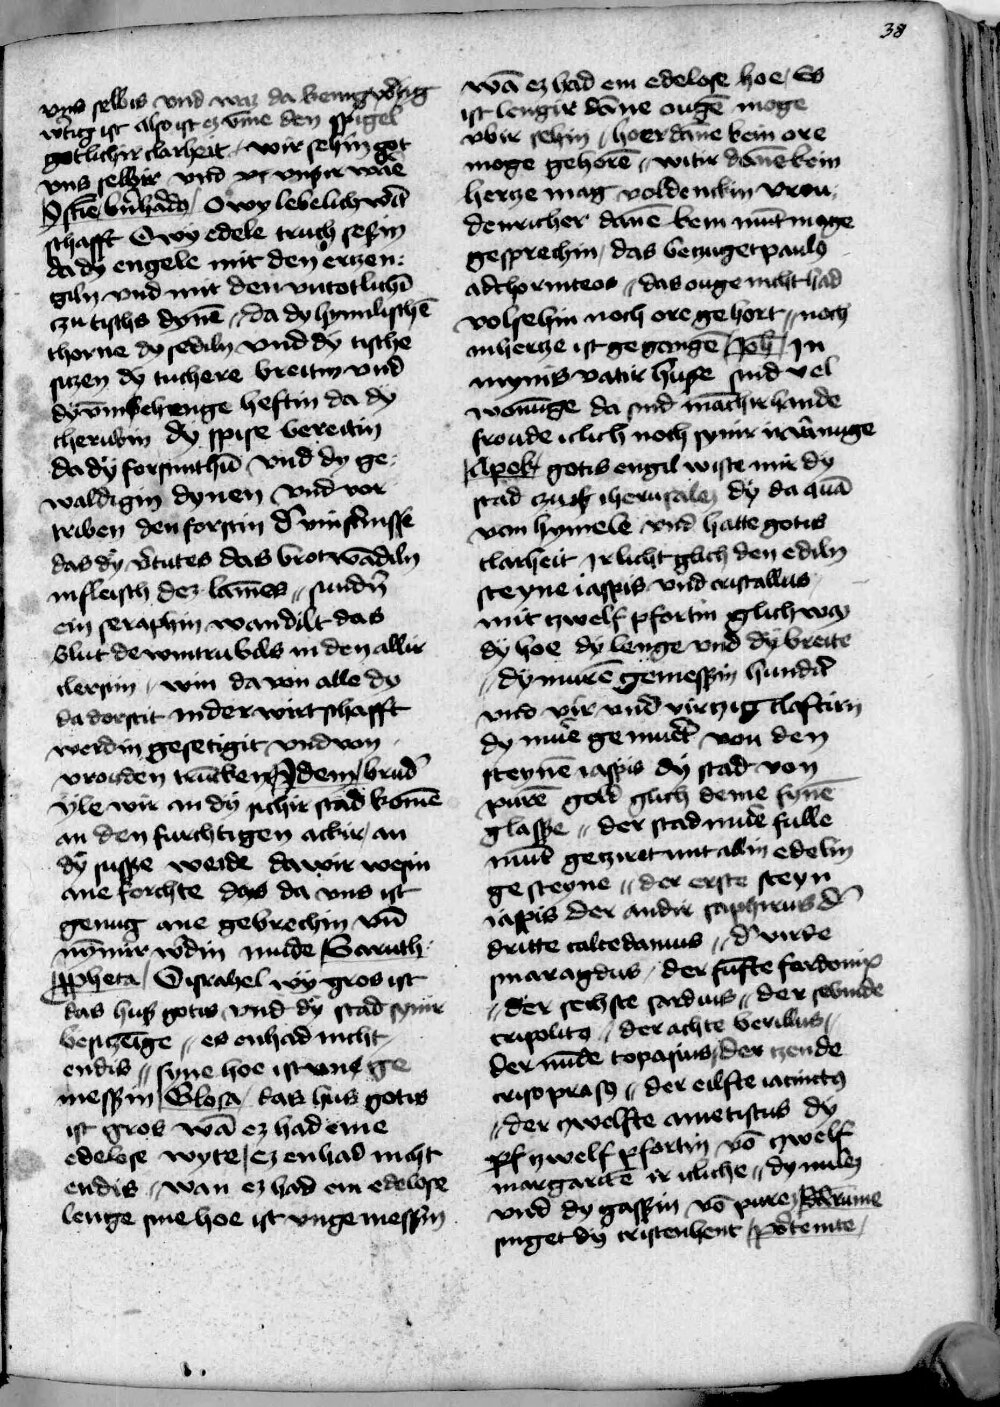 38
vns selbis vnd waz da kenigwᵉdig
wᵉtig ist also ist ez vm̄e den spigel
gotlichir clarheit / wir sehin got
vns selbir vnd vnsir wān
O wy lebelich wīt
schafft O wy edele truch sessin
da dy engele mit den erczen:
giln vnd mit den vntotlichī
czu tischs dynē // da dy hymilischē
throne dy sediln vnd dy tische
siczen dy tuchere breitin vnd
dy vm̄behenge heftin da dy
cherubin dy spise bereitin
da dy forsinthū vnd dy ge:
waldigin dynen vnd vor
triben den forstin dˢ vinstˢnisse
das dy vˢtutes das brot wādiln
in fleisch dez lam̄es // sundˢn
ein seraphin wandilt das
blut de wintrubils in den allir
clerstin / win da von alle dy
da dorstit in der wirtschafft
werdin gesetigit vnd von
vrouden trūcken Jdem brudˢ
yle wir in dy sichir stad komē
an den furchtigen ackir / an
dy susse weide da wir wesin
ane forchte das da vns ist
genug ane gebrechin vn̄
nȳmir wˢdin mude Baruth
Ppheta / O israhel wy gros ist
das hus gotis vnd dy stad synir
besiczūge // es enhad nicht
endis // syne hoe ist vne ge
messin Glosa / das hus gotis
ist gros wā ez had eine
edelose wyte / ez enhad nicht
endis // wan ez had ein edelose
lenge sine hoe ist vngemessin
wā ez had ein edelose hoe / Es
ist lengir dāne ougē moge
vbir sehin / hoer dāne kein ore
moge gehorē // witir dāne kein
hercze mag voldenckin vrou:
denricher danē kein mūt moge
gesprechin / das beczuget paulꝰ
ad chorinteos // das ouge nicht had
volsehin noch ore gehort // noch
in hercze ist gegangē Joh In
mynis vatir huse sind vel
wonūge da sind māchirhande
froude iclich noch synir
Apok / gotis engil wiste mir dy
stad czu iherusalē dy da quā
von hymele vnd hatte gotis
clarheit Ir licht glich den ediln
steyne iaspis vnd cristallus
mit czwelf pfortin glich was
dy hoe dy lenge vnd dy breite
// dy murē gemessin hundˢt
vnd vir vnd virczig claftirn
dy mūe gemuˢt von den
steynē iaspis dy stad von
purē gold glich deme synē
glasse // der stad mūe fulle
mūt gecziret mit allin edelin
gesteyne // der erste steyn
iaspis der andir saphirus dˢ
dritte calcedanius // dˢ virde
smaragdus / der fūfte sardonix
// der sechste sardius // der sebinde
crisolitꝰ // der achte berillus //
der nūde topasius / der czende
crisoprasꝰ // der eilfte iacinctꝰ
// der czwelfte ametistus dy
czwelf pfortin vō czwelf
margaritē ir icliche // dy mulen
vnd dy gassin vō pure
singet dy cristenheit